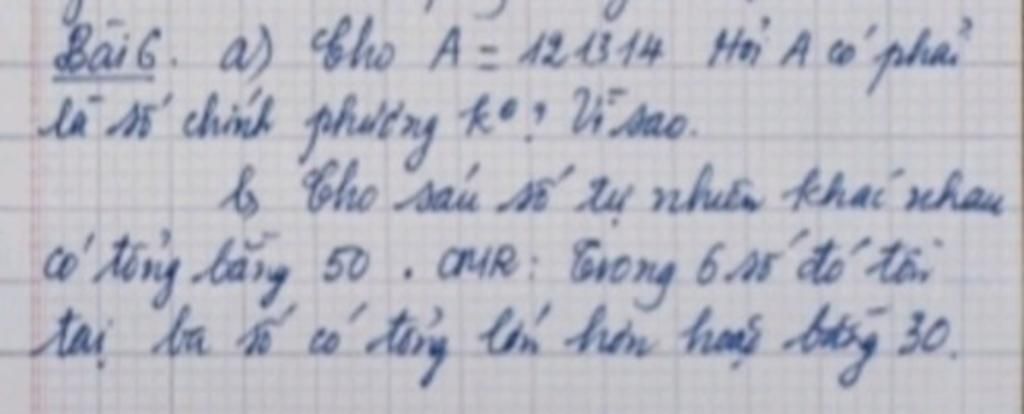 Bài 6. a) Cho A = 121314 Hỏi A có phải
là số chính phương kº? Vì sao.
b, Cho sáu số tự nhiên khác nhau
có tổng bằng 50. CMR: Trong 6 số đó tồn
tại ba số có tổng lớn hơn hoặc bằng 30.